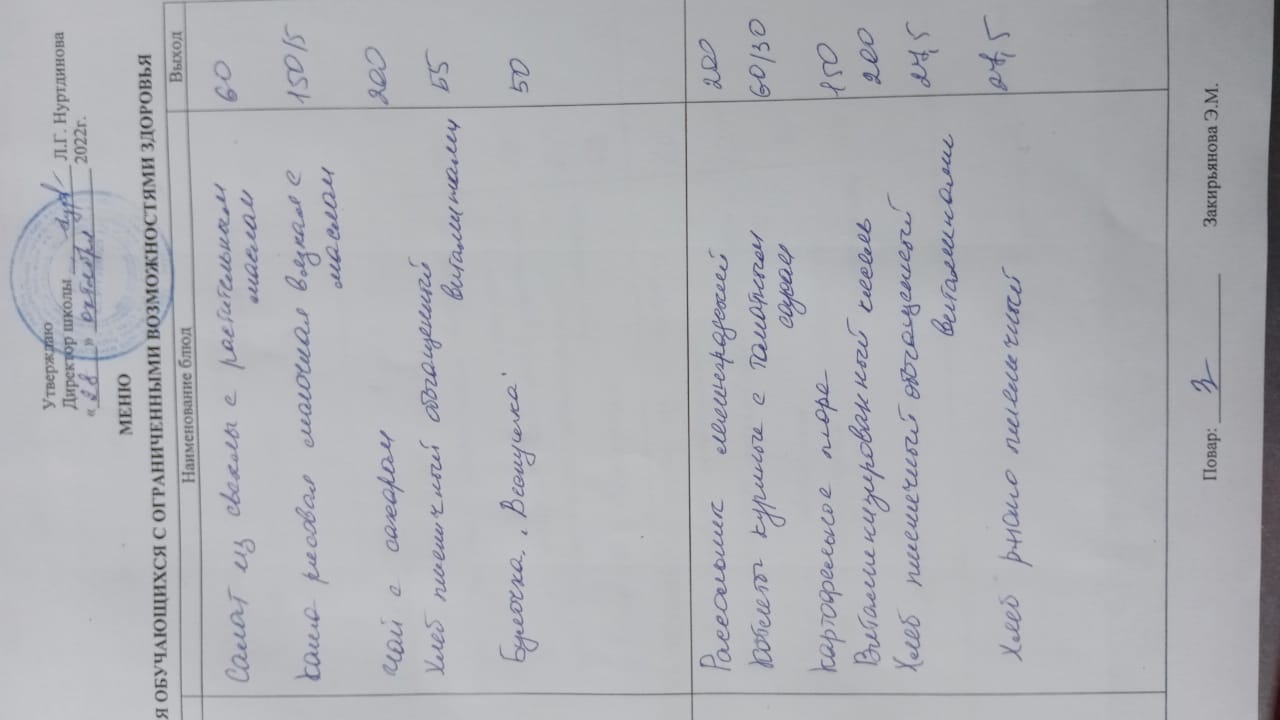 Утверждаю
Директор школы Л.Г. Нуртдинова
« 28 » октября 2022г.
МЕНЮ
Я ОБУЧАЮЩИХСЯ С ОГРАНИЧЕННЫМИ ВОЗМОЖНОСТЯМИ ЗДОРОВЬЯ
Наименование блюд Выход
Салат из свеклы с растительным 60
маслом
Каша рисовая молочная вязкая с 150/5
маслом
Чай с сахаром 200
Хлеб пшеничный обогащенный 55
витаминами
Булочка "Веснушка" 50
Рассольник ленинградский 200
Котлеты куриные с томатным 60/30
соусом
Картофельное пюре 150
Витаминизированный кисель 200
Хлеб пшеничный обогащенный 27,5
витаминами
Хлеб ржано пшеничный 27,5
Повар: Закирьянова Э.М.